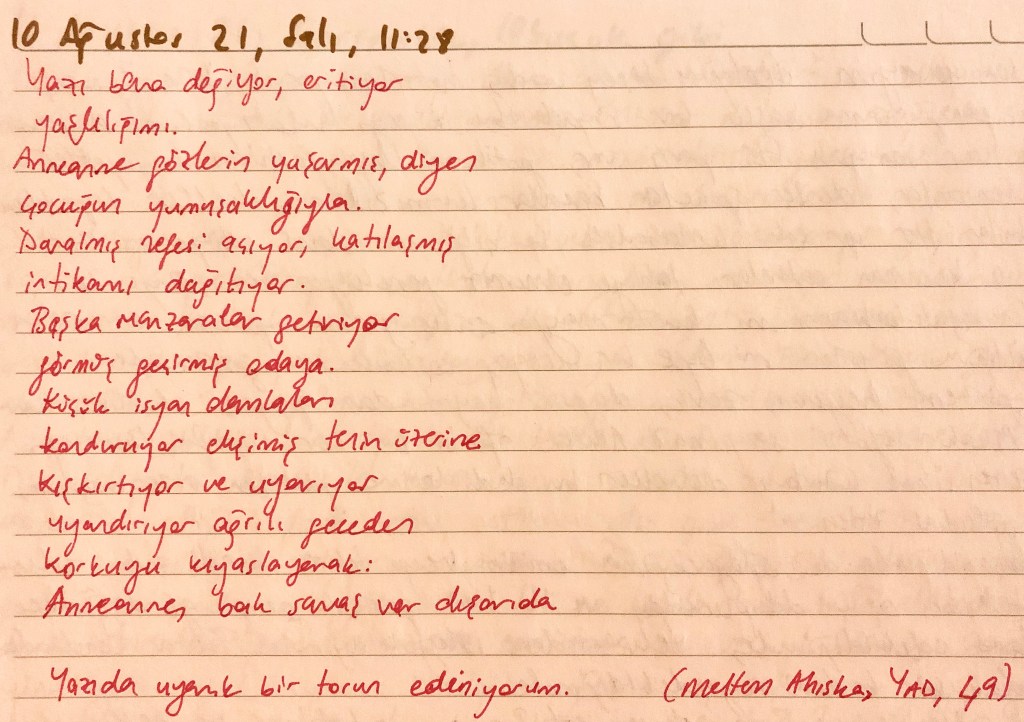 10 Ağustos 21, Salı, 11:28
Yazı bana değiyor, eritiyor
yaşlılığımı.
Anneanne gözlerin yaşarmış, diyen
çocuğun yumuşaklığıyla.
Daralmış nefesi açıyor, katılaşmış
intikamı dağıtıyor.
Başka manzaralar getiriyor
görmüş geçirmiş odaya.
Küçük isyan damlaları
konduruyor ekşimiş tenin üzerine
Kışkırtıyor ve uyarıyor
uyandırıyor ağrılı geceden
Korkuyu kıyaslayarak:
Anneanne, bak savaş var dışarıda
Yazıda uyanık bir torun ediniyorum. (Meltem Ahıska, YAD, 49)